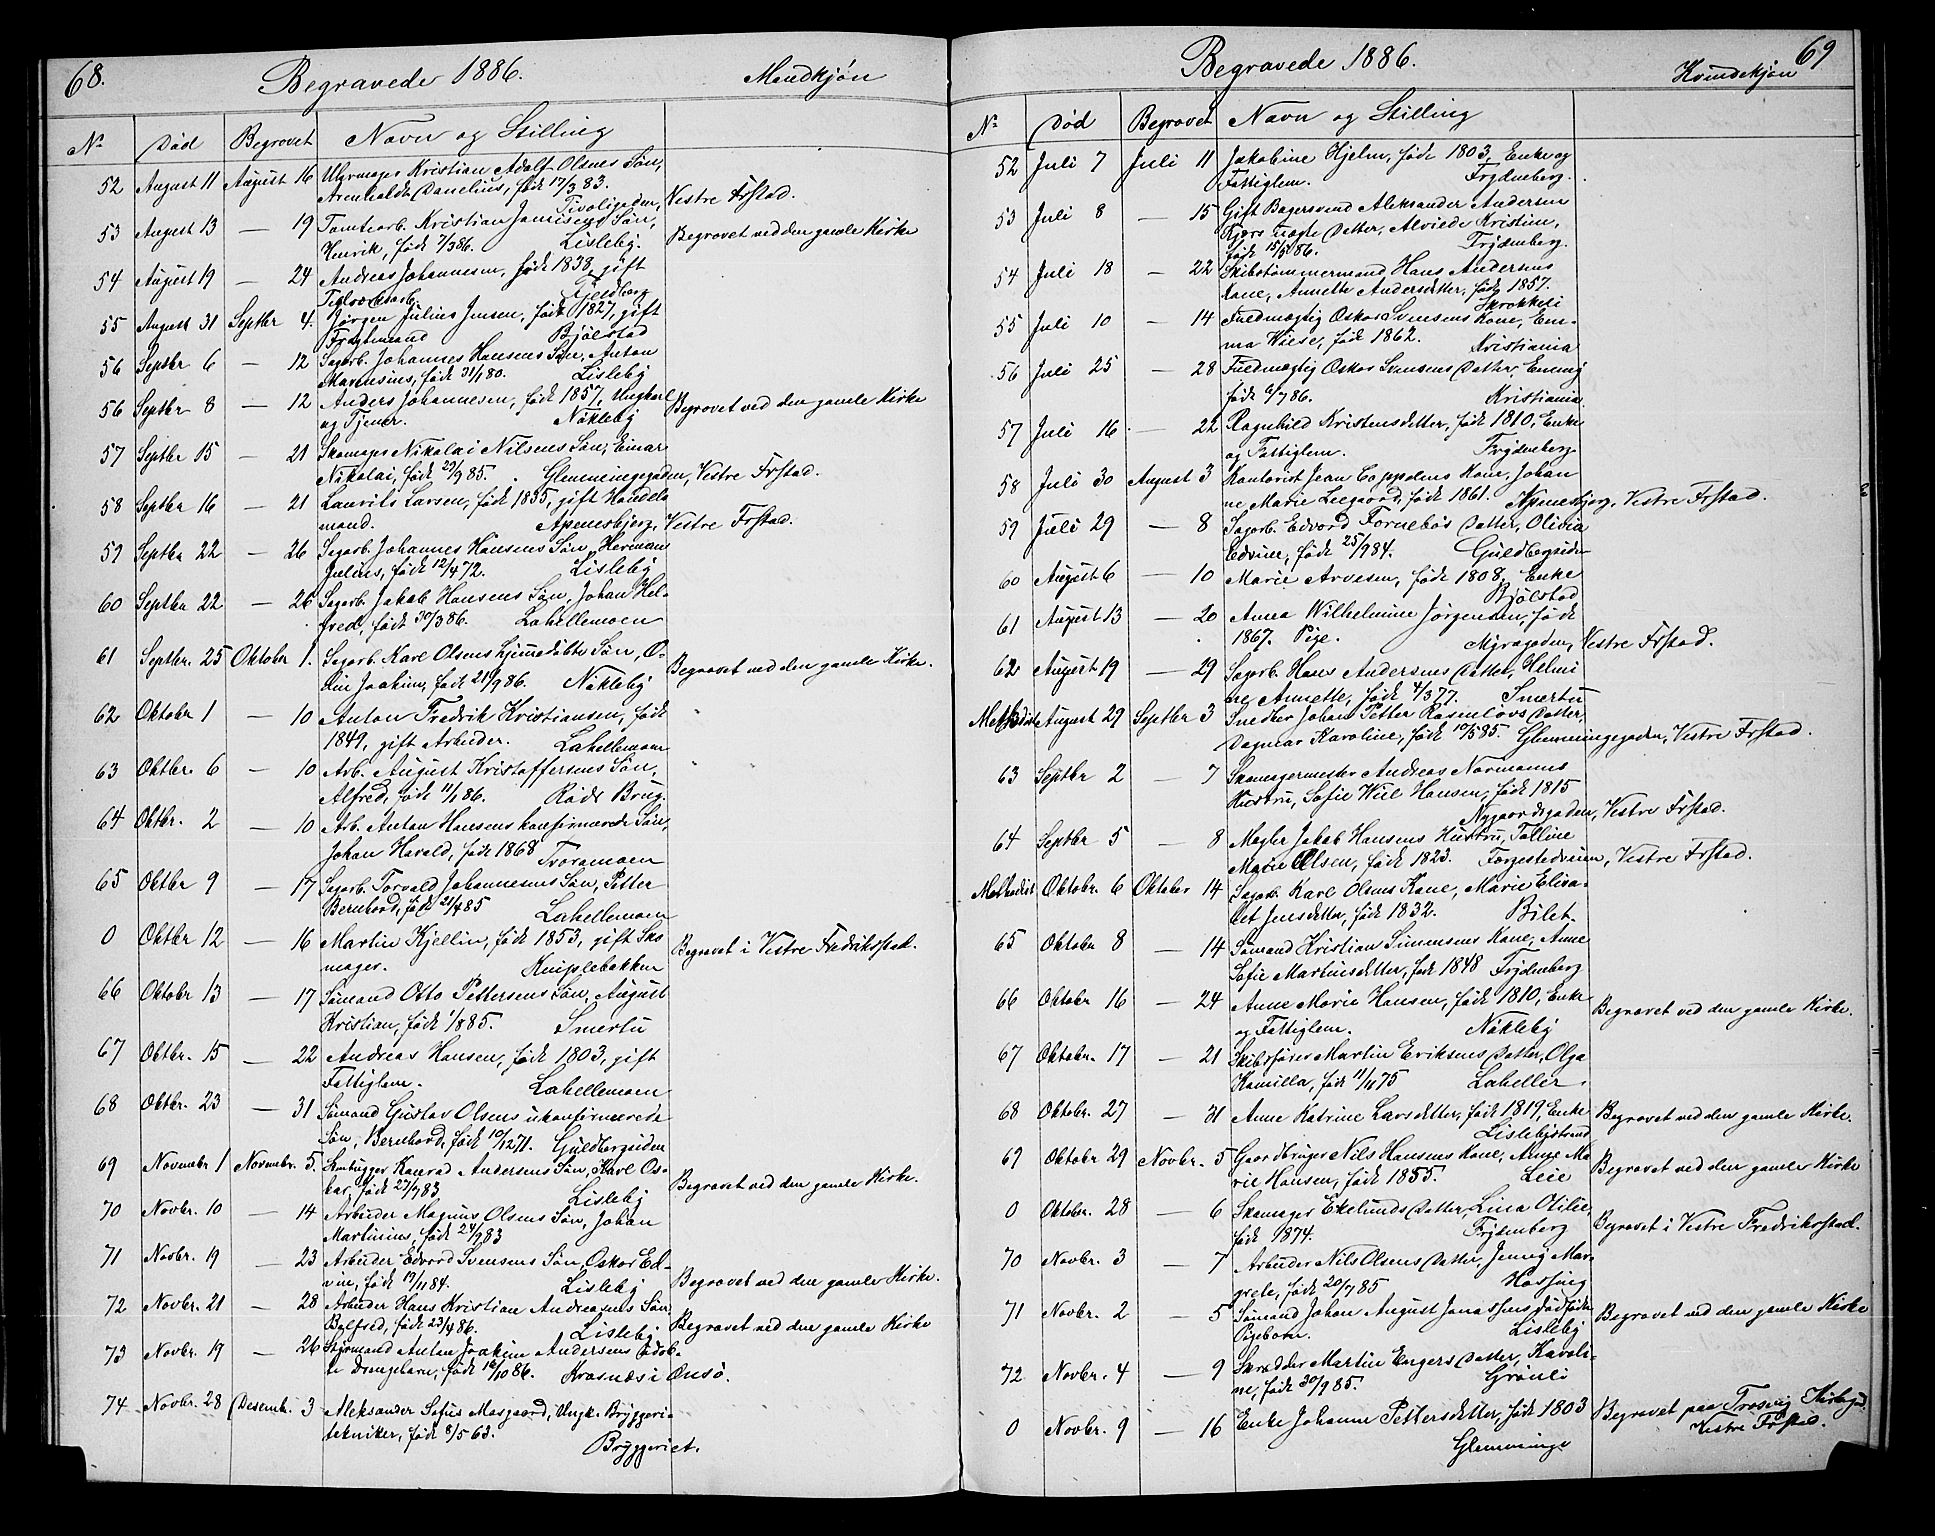 68. Begravede 1886. Mandkjøn
No Død Begravet Navn og Stilling
52 August 11 August 16 Uhrmager Kristian Adolf Olsens Søn,
Arenhaldt Danelius, født 17/3 83. Tivoligaden, Vestre Frstad.
53 August 13 — 19 Tomtearb. Kristian Jansens Søn,
Henrik, født 7/3 86. Lisleby. Begravet ved den gamle Kirke
54 August 19 — 24 Andreas Johannesen, født 1838, gift
Teglverksarb. Fjeldberg
55 August 31 Septbr 4. Jørgen Julius Jensen, født 1827, gift
Fragtemand Bjølstad
56 Septbr 6 — 12 Sagarb. Johannes Hansens Søn, Anton
Marensius, født 31/1 80. Lisleby
56 Septbr 8 — 12 Anders Johannesen, født 1857, Ungkarl
og Tjener. Nøkleby Begravet ved den gamle Kirke
57 Septbr 15 — 21 Skomager Nikolai Nilsens Søn, Einar
Nikolai, født 29/9 85. Glemmingegaden, Vestre Frstad.
58 Septbr 16 — 21 Laurits Larsen, født 1835, gift Handels
mand. Apenesbjerg, Vestre Frstad.
59 Septbr 22 — 26 Sagarb. Johannes Hansens Søn, Herman
Julius, født 12/4 72. Lisleby
60 Septbr 22 — 26 Sagarb. Jakob Hansens Søn, Johan Hel-
fred, født 30/3 86. Lahellemoen
61 Septbr. 25 Oktober 1. Sagarb. Karl Olsens hjemedøbte Søn, O-
din Joakim, født 21/9 86. Nøkleby Begravet ved den gamle Kirke.
62 Oktobr 1 — 10 Anton Fredrik Kristiansen, født
1849, gift Arbeider. Lahellemoen
63 Oktbr. 6 — 10 Arb. August Kristoffersens Søn,
Alfred, født 11/1 86. Røds Brug.
64 Oktbr. 2 — 10 Arb. Anton Hansens konfirmerede Søn,
Johan Harald, født 1868 Traramoen
65 Oktbr 9 — 17 Sagarb. Torvald Johannesens Søn, Petter
Bernhard, født 21/4 85 Lahellemoen
0 Oktbr 12 — 16 Martin Kjellin, født 1853, gift Sko
mager. Kniplebakken Begravet i Vestre Fredrikstad.
66 Oktobr 13 — 17 Sømand Otto Pettersens Søn, August
Kristian, født 1/8 85. Smertu
67 Oktbr. 15 — 22 Andreas Hansen, født 1803, gift
Fattiglem. Lahellemoen
68 Oktbr. 23 — 31 Sømand Gustav Olsens ukonfirmerede
Søn, Bernhard, født 10/12 71. Guldbergsiden
69 Novembr 1 Novembr. 5. Stenhugger Konrad Andersens Søn, Karl Os-
kar, født 27/7 83 Lisleby Begravet ved den gamle Kirke.
70 Novbr. 10 — 14 Arbeider Magnus Olsens Søn, Johan
Martinius, født 24/9 83
71 Novbr. 19 — 23 Arbeider Edvard Svensens Søn, Oskar Ed-
vin, født 19/11 84. Lisleby Begravet ved den gamle Kirke.
72 Novbr. 21 — 28 Arbeider Hans Kristian Andreasens Søn,
Balfred, født 23/4 86. Lisleby. Begravet ved den gamle Kirke
73 Novbr. 19 — 26 Styrmand Anton Joakim Andersens udøb-
te Drengebarn, født 16/10 86. Krosnæs i Onsø.
74 Novbr. 28 Desembr. 3 Aleksander Sofus Masgaard, Ungk. Bryggeri-
tekniker, født 8/5 63. Bryggeriet.
Begravede 1886. Kvindekjøn 69
No Død Begravet Navn og Stilling
52 Juli 7 Juli 11 Jakobine Hjelm, født 1803, Enke og
Fattiglem. Frydenberg.
53 Juli 8 — 15 Gift Bagersvend Aleksander Andersen
Kjærs uægte Datter, Alviede Kristine,
født 15/5 86. Frydenberg.
54 Juli 18 — 22 Skibstømmermand Hans Andersens
Kone, Annette Andersdatter, født 1857.
55 Juli 10 — 14 Fuldmægtig Oskar Svensens Kone, Em-
ma Wiese, født 1862. Kristiania
56 Juli 25 — 28 Fuldmægtig Oskar Svensens Datter, Emmy
født 6/7 86. Kristiania.
57 Juli 16 — 22 Ragnhild Kristensdatter, født 1810, Enke
og Fattiglem. Frydenberg
58 Juli 30 August 3 Kontorist Jean Coppolens Kone, Johan
ne Marie Leegaard, født 1861. Apenesbjerg, Vestre Frstad.
59 Juli 29 — 8 Sagarb. Edvard Fornebos Datter, Olivia
Edvine, født 25/9 84. Guldbergsiden
60 August 6 — 10 Marie Arvesen, født 1808, Enke
Bjølstad
61 August 13 — 20 Anna Wilhelmine Jørgensen, født
1867. Pige. Myragaden, Vestre Frstad.
62 August 19 — 29 Sagarb. Hans Andersens Datter, Helmi
ne Annette, født 4/3 77. Smertu
Methodist August 29 Septbr 3 Snedker Johan Petter Rasmløvs Datter,
Dagmar Karoline, født 10/5 85. Glemmingegaden, Vestre Frstad.
63 Septbr 2 — 7 Skomagermester Andreas Normanns
Hustru, Sofie Wiel Hansen, født 1815
Nygaardsgaden, Vestre Frstad.
64 Septbr 5 — 8 Megler Jakob Hansens Hustru, Talline
Marie Olsen, født 1823. Torgestedveien, Vestre Frstad.
Methodist Oktobr. 6 Oktober 14 Sagarb. Karl Olsens Kone, Marie Elisa-
bet Jensdatter, født 1832. Bilet.
65 Oktobr 8 — 14 Sømand Kristian Simensens Kone, Anne
Sofie Martinsdatter, født 1848 Frydenberg
66 Oktobr 16 — 24 Anne Marie Hansen, født 1810, Enke
og Fattiglem. Nøkleby Begravet ved den gamle Kirke.
67 Oktobr. 17 — 21 Skibsfører Martin Eriksens Datter, Olga
Kamilla, født 11/11 75 Laheller.
68 Oktobr. 27 — 31 Anne Katrine Larsdatter, født 1819, Enke
Lislebystrand Begravet ved den gamle Kirke.
69 Oktobr 29 Novbr. 5 Gaardbruger Nils Hansens Kone, Anne Ma
rie Hansen, født 1855. Leie Begravet ved den gamle Kirke
0 Oktobr. 28 — 6 Skomager Ekelunds Datter, Lina Otilie,
født 1874. Frydenberg Begravet i Vestre Fredrikstad.
70 Novbr. 3 — 7 Arbeider Nils Olsens Datter, Jenny Mar-
grete, født 20/7 85 Hassing
71 Novbr. 2 — 5 Sømand Johan August Jonassens dødfødte
Pigebarn. Lisleby Begravet ved den gamle Kirke
72 Novbr. 4 — 9 Skrædder Martin Engers Datter, Karoli-
ne, født 30/9 85. Grønli
0 Novbr. 9 — 16 Enke Johanne Pettersdatter, født 1803
Glemminge Begravet paa Trosvig Kirkegd.
Vestre Frstad.